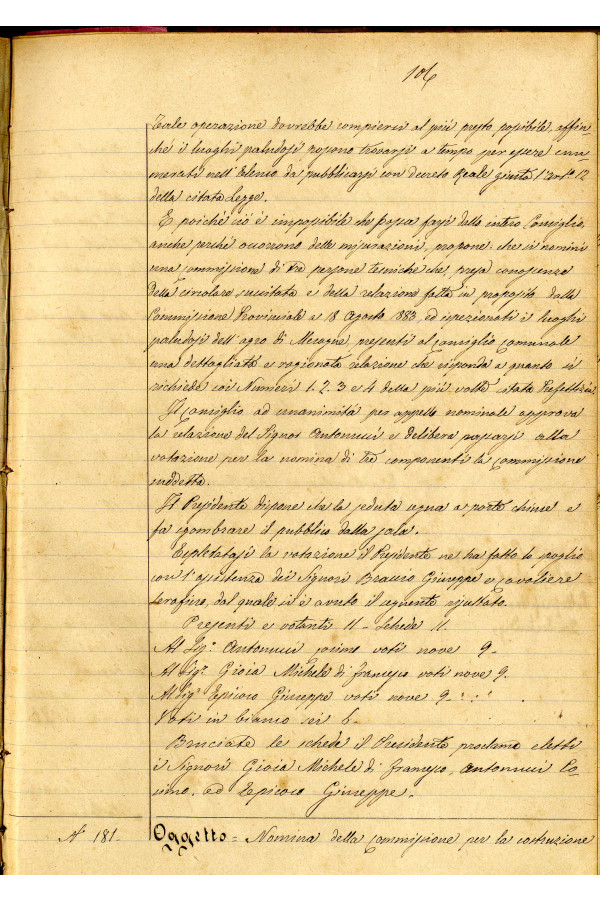 106
Tale operazione dovrebbe compiersi al più presto possibile, affin-
chè i luoghi paludosi possono trovarsi a tempo per essere enu-
merati nell'Elenco da pubblicarsi con decreto Reale giusta l'art.o 12
della citata Legge.
E poichè ciò è impossibile che possa farsi dallo intero Consiglio,
anche perchè occorrono delle misurazioni, propone: che si nomini
una commissione di tre persone tecniche che, presa conoscenza
della circolare succitata e della relazione fatta in proposito dalla
Commissione Provinciale a 18 Agosto 1883, ed ispezionati i luoghi
paludosi dell'agro di Mesagne, presenti al consiglio comunale
una dettagliata e ragionata relazione che risponda a quanto si
richiede coi Numeri 1. 2. 3 e 4 della più volte citata Prefettizia
Il Consiglio ad unanimità per appello nominale approva
la relazione del Signor Antonucci e delibera passarsi alla
votazione per la nomina di tre componenti la commissione
suddetta.
Il Presidente dispone che la seduta segua a porte chiuse e
fa sgombrare il pubblico dalla sala.
Espletatasi la votazione il Presidente ne ha fatto lo spoglio
con l'assistenza dei Signori Brauro Giuseppe e Cavaliere
Serafino, dal quale si è avuto il seguente risultato.
Presenti e votanti 11 - Schede 11.
Al Sig.r Antonucci Cosimo voti nove 9-
Al Sig.r Gioia Michele di Francesco voti nove 9.
Al Sig.r Epicoco Giuseppe voti nove 9-
Voti in bianco sei 6-
Bruciate le schede il Presidente proclama eletti
i Signori Gioia Michele di Francesco, Antonucci Co-
simo, ed Epicoco Giuseppe.-
N° 181. Oggetto = Nomina della Commissione per la costruzione